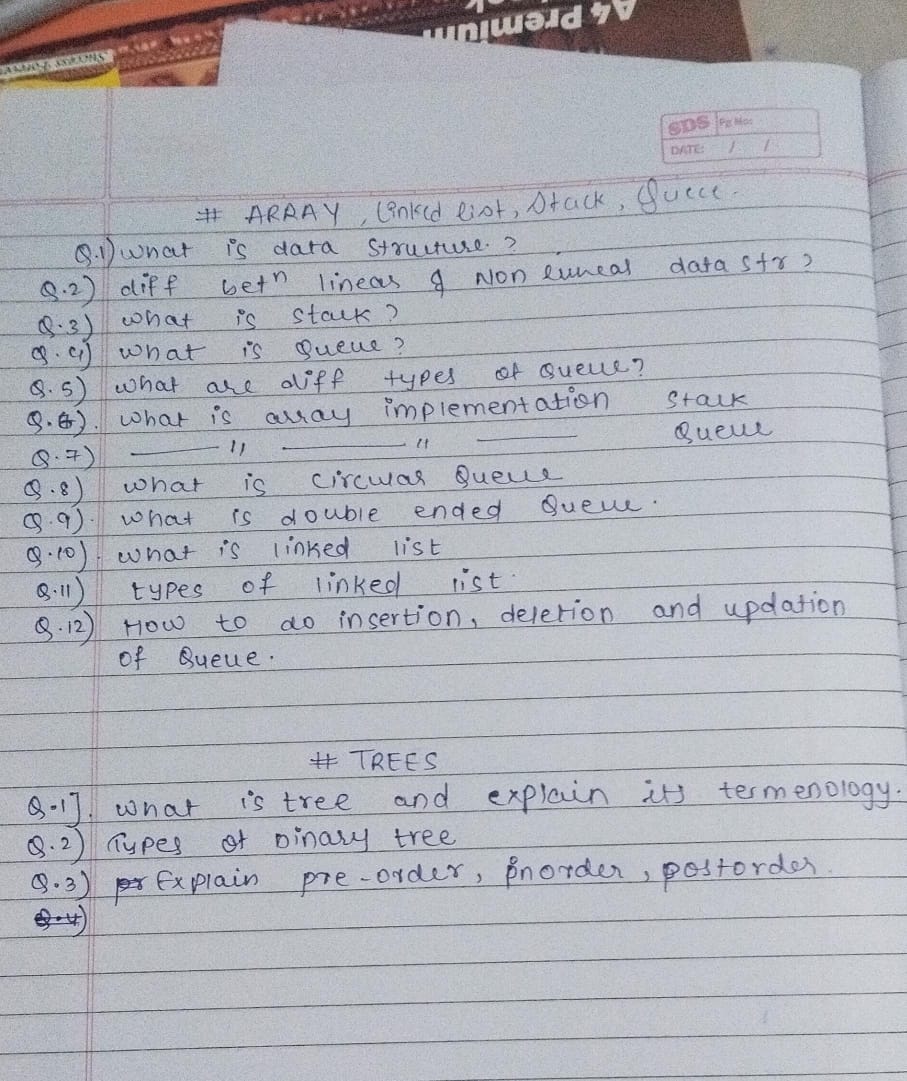 A4 Premium
SDS Pg No:
DATE: / /
# ARRAY, Linked list, Stack, Queue.
Q.1) what is data structure.?
Q.2) diff betn linear & Non linneal data str?
Q.3) what is stack?
Q.4) what is Queue?
Q.5) what are diff types of Queue?
Q.6). what is array implementation Stack
Q.7) —— " —— " —— Queue
Q.8) what is circular Queue
Q.9). what is double ended Queue.
Q.10). what is linked list
Q.11) types of linked list.
Q.12) How to do insertion, deletion and updation
of Queue.
# TREES
Q.1]. what is tree and explain its termenology.
Q.2) Types of binary tree
Q.3) Explain pre-order, inorder, postorder.
Q.4)